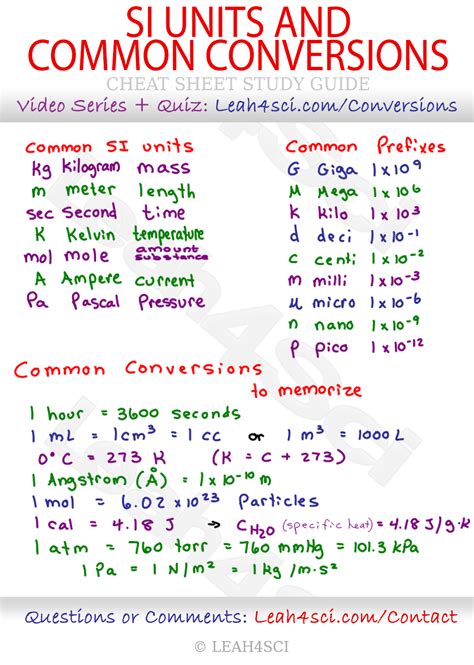 SI UNITS AND
COMMON CONVERSIONS
CHEAT SHEET STUDY GUIDE
Video Series + Quiz: Leah4sci.com/Conversions
Common SI units
kg Kilogram mass
m meter length
sec Second time
K Kelvin temperature
mol mole amount substance
A Ampere current
Pa Pascal Pressure
Common Prefixes
G Giga 1 x 10⁹
M Mega 1 x 10⁶
k kilo 1 x 10³
d deci 1 x 10⁻¹
c centi 1 x 10⁻²
m milli 1 x 10⁻³
μ micro 1 x 10⁻⁶
n nano 1 x 10⁻⁹
p pico 1 x 10⁻¹²
Common Conversions
to memorize
1 hour = 3600 seconds
1 mL = 1cm³ = 1 cc or 1 m³ = 1000 L
0°C = 273 K (K = C + 273)
1 Angstrom (Å) = 1x10⁻¹⁰ m
1 mol = 6.02 x 10²³ Particles
1 cal = 4.18 J → CH₂O (specific heat) = 4.18 J/g·K
1 atm = 760 torr = 760 mmHg = 101.3 kPa
1 Pa = 1 N/m² = 1 kg/m·s²
Leah4Sci
Questions or Comments: Leah4sci.com/Contact
© LEAH4SCI